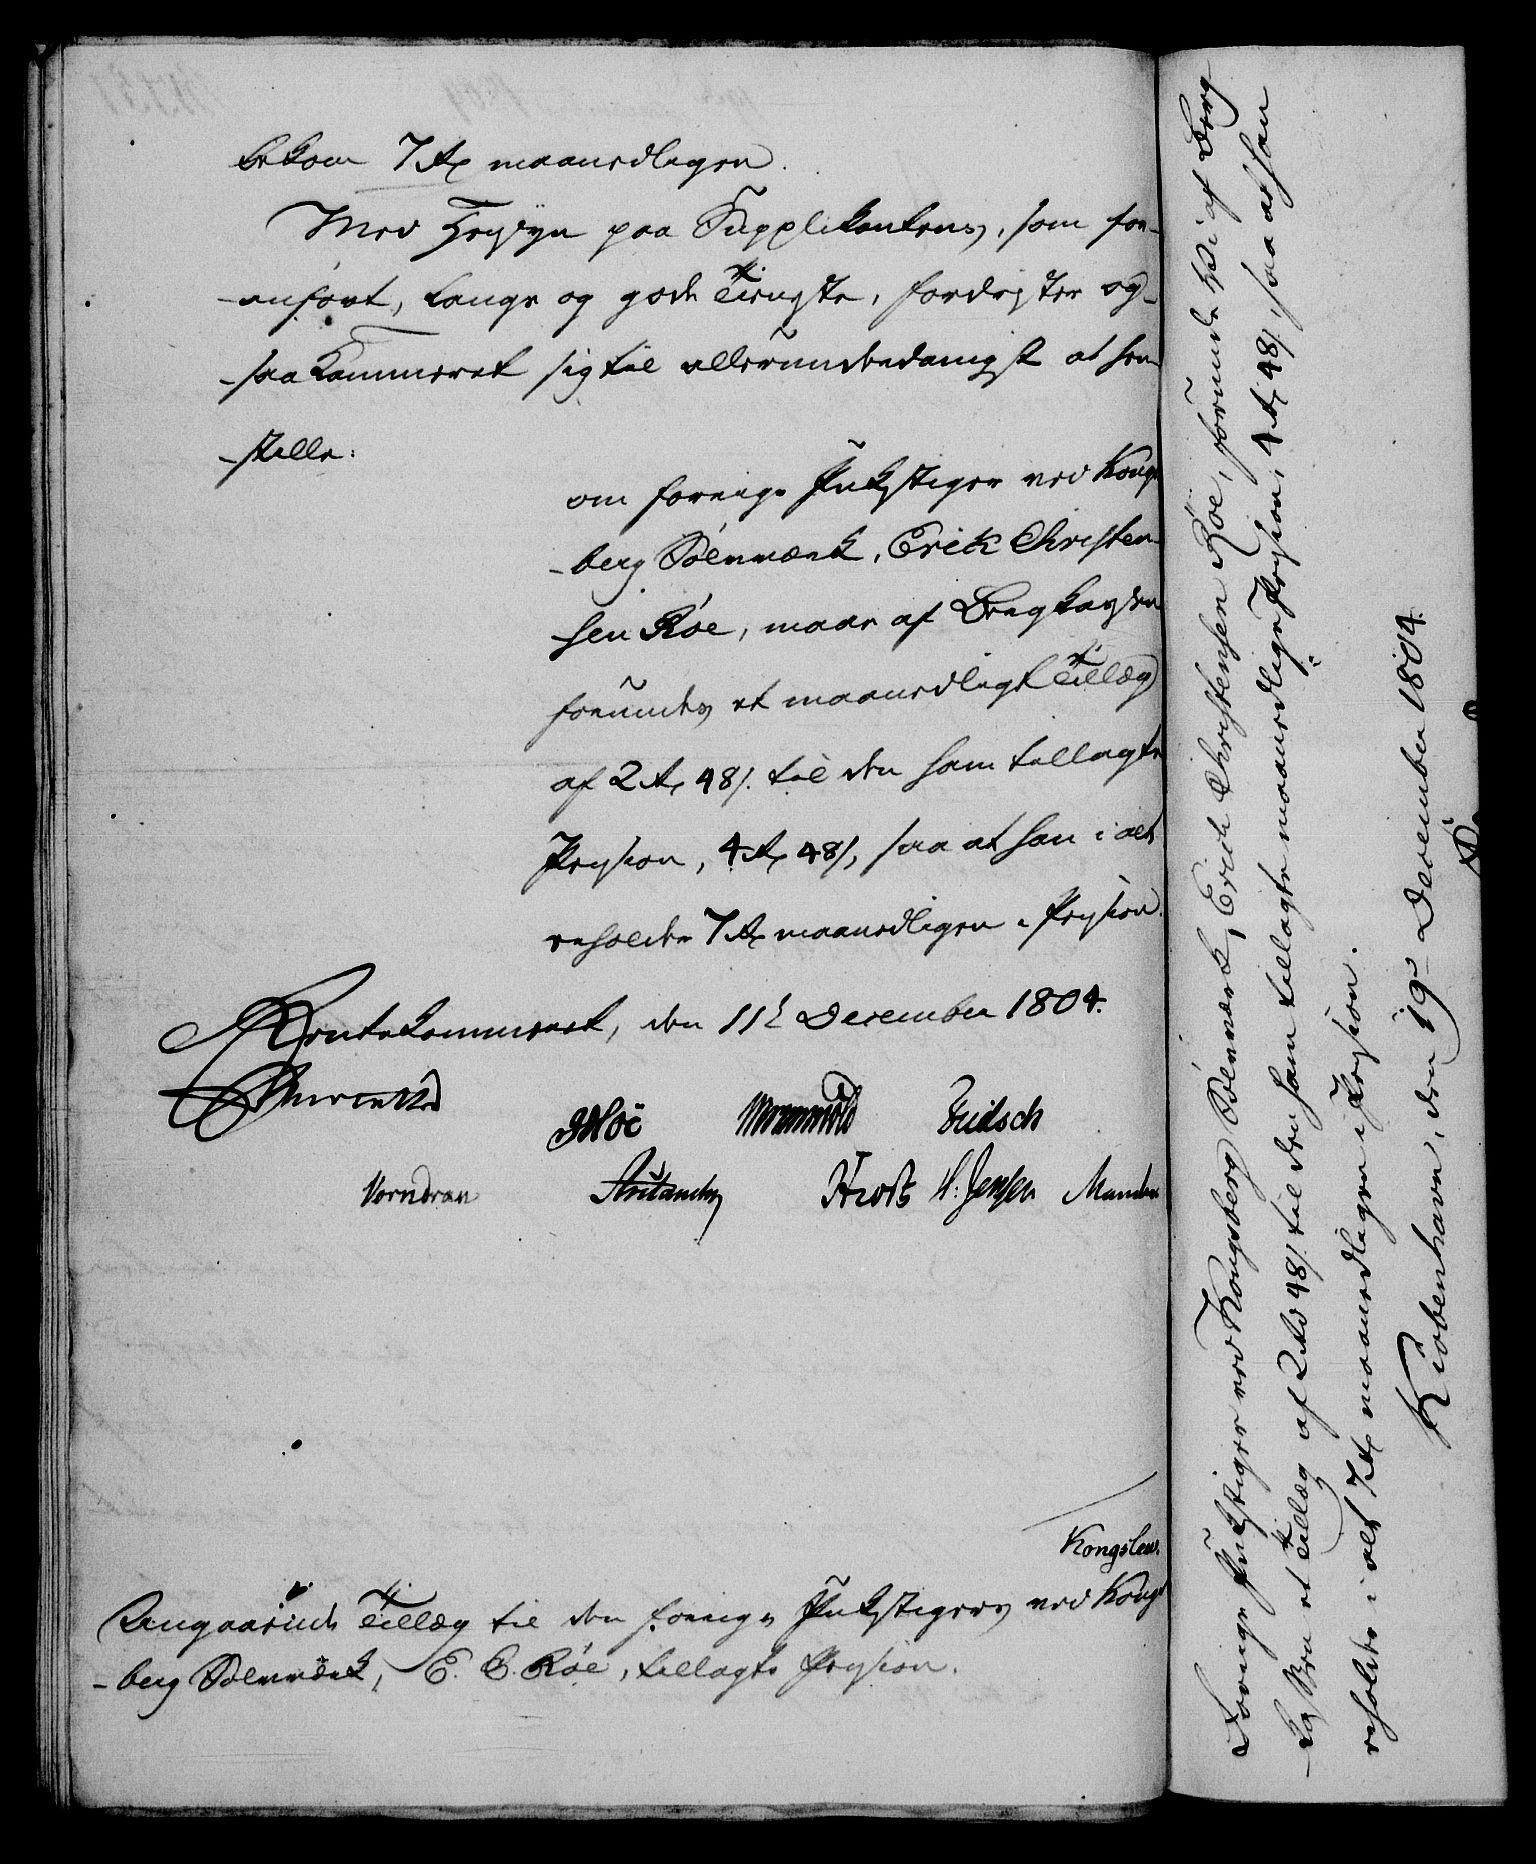 bekom 7 Rd maanedligen.
Med Hensyn paa Supplikantens, som for-
-anført, lange og gode Tieneste, fordrister og-
-saa Kammeret sig til allerunderdanigst at fore-
-stille:
om forrige Pukstiger ved Kongs-
-berg Sølvværk, Erik Christen-
sen Röe, maae af Bergkassen
forundes et maanedligt Tillæg
af 2 Rd 48 s. til den ham tillagte
Pension, 4 Rd 48 s, saa at han i alt
erholder 7 Rd maanedligen i Pension.
Rentekammeret, den 11te December 1804.
JMöe Wormskiold Fridsch
Vorndran Hvoss H: Jensen Munch
Kongsberg.
Angaaende Tillæg til den forrige Pukstigers ved Kongs-
-berg Sølvværk, E. C. Röe, tillagte Pension.
Forrige Pukstiger ved Kongsberg Sølvværk, Erich Christensen Röe, forunde Vi af Berg-
-kassen et Tillæg af 2 Rd 48 s. til den ham tillagte maanedlige Pension, 4 Rd 48 s, saa at han
erholder i alt 7 Rd maanedligen i Pension.
Kiøbenhavn, den 19de December 1804.